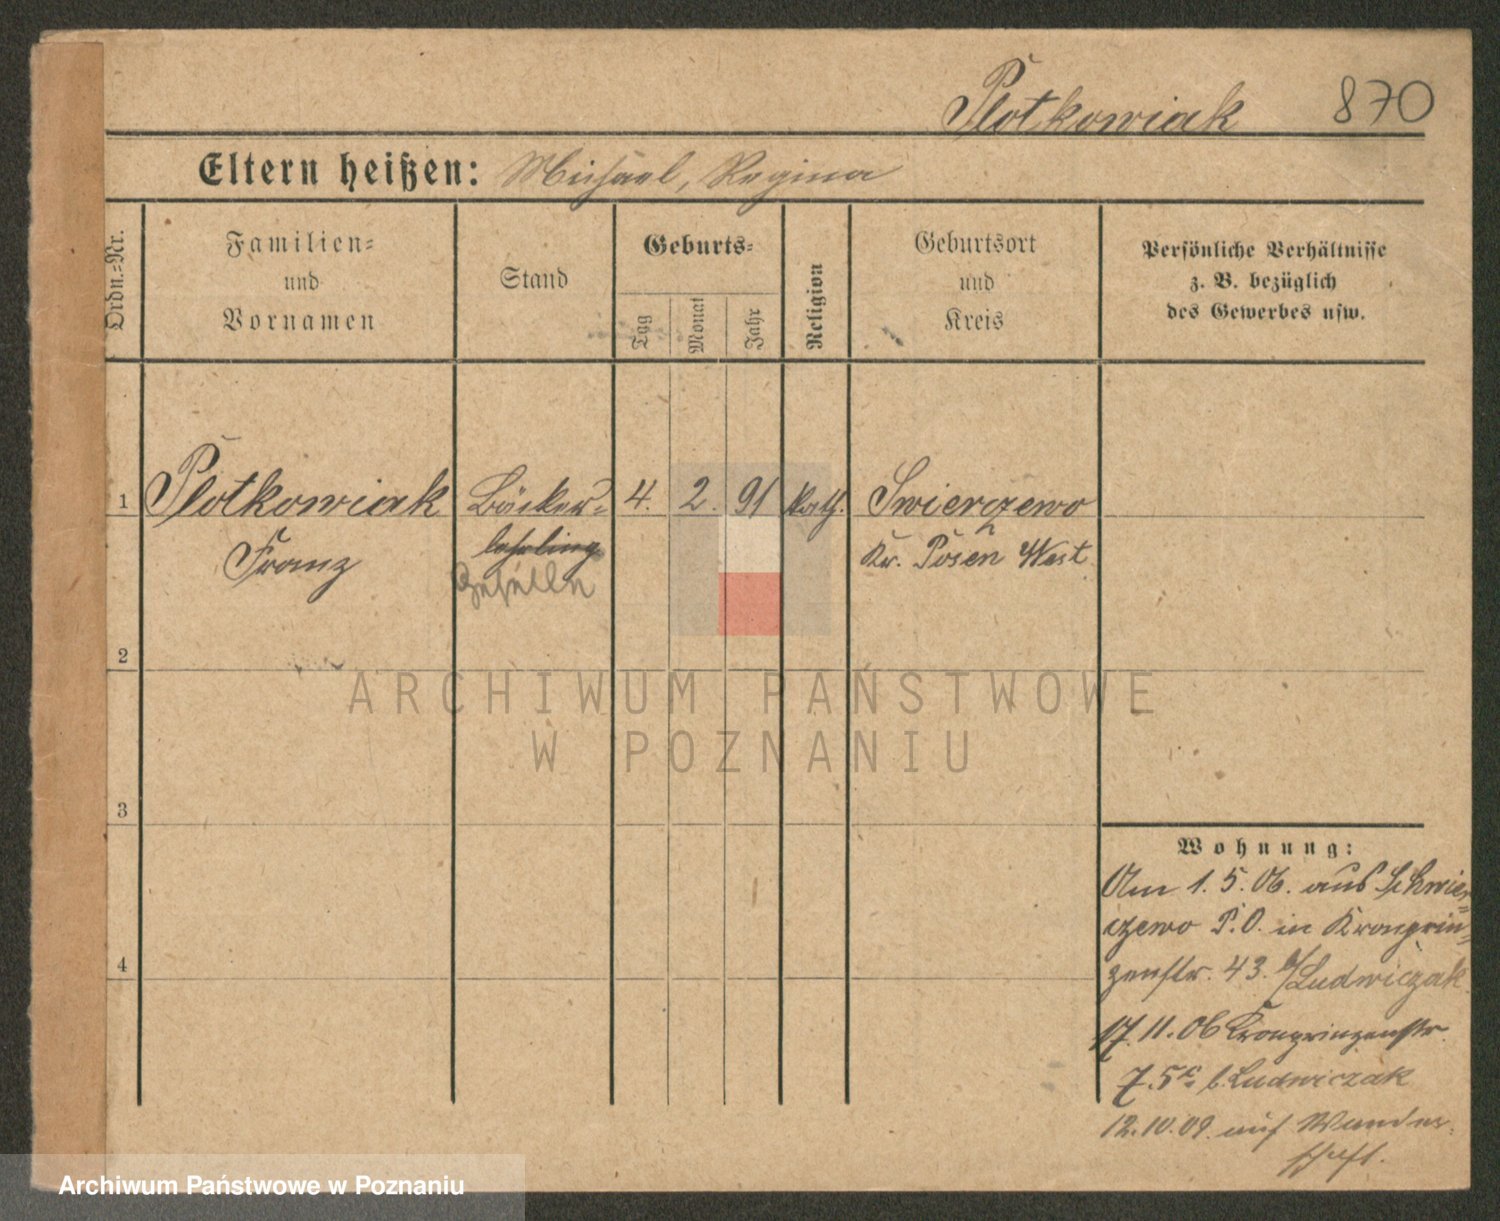 Plotkowiak 870
Eltern heißen: Michael, Regina
Ordn.-Nr.
Familien-
und
Vornamen
Stand
Geburts-
Tag
Monat
Jahr
Religion
Geburtsort
und
Kreis
Persönliche Verhältnisse
z. B. bezüglich
des Gewerbes usw.
1 Plotkowiak Bäcker- 4. 2. 91 kath. Swierczewo
Franz lehrling Kr. Posen West
Geselle
2
3
4
Wohnung:
Am 1. 5. 06. aus Schwier-
czewo P.O. in Kronprin-
zenstr. 43. b/Ludwiczak
17. 11. 06 Kronprinzenstr.
b. Ludwiczak
12. 10. 09. auf Wander-
schaft.
ARCHIWUM PAŃSTWOWE
W POZNANIU
Archiwum Państwowe w Poznaniu